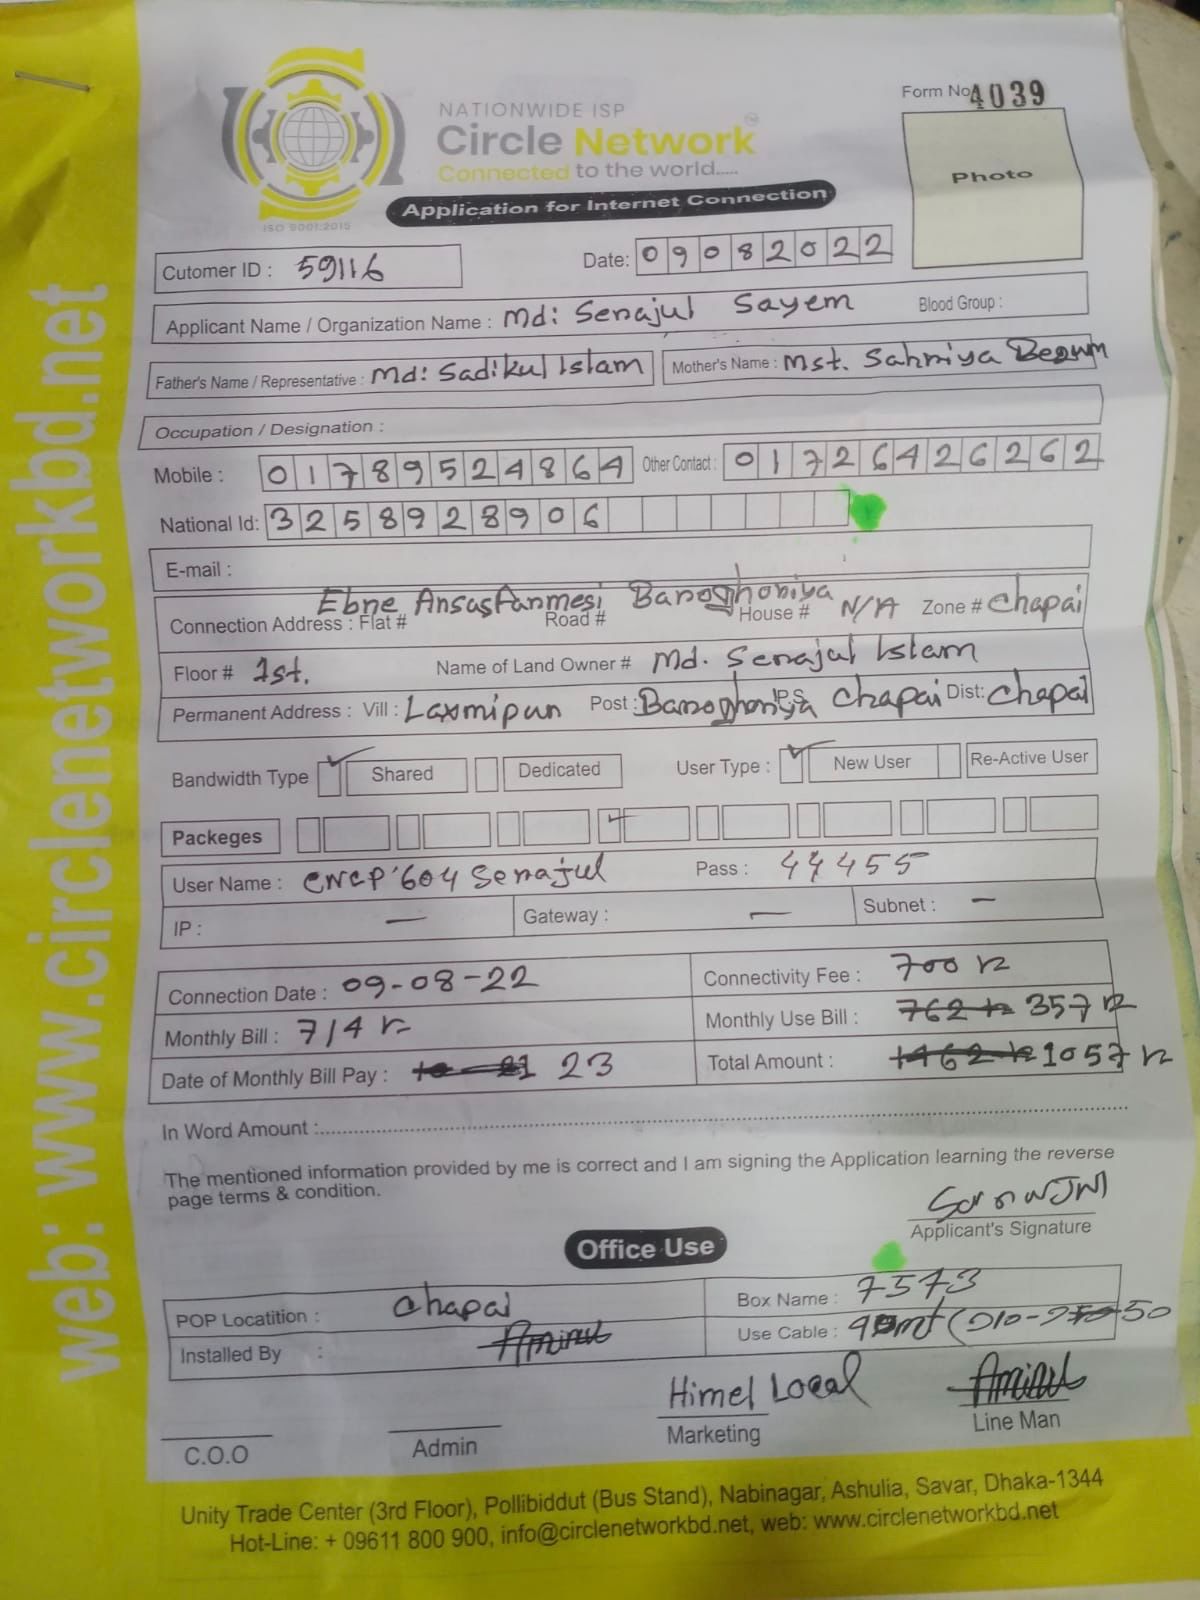 web: www.circlenetworkbd.net
ISO 9001:2015
NATIONWIDE ISP
Circle Network™
Connected to the world.....
Application for Internet Connection
Form No 4039
Photo
Cutomer ID : 59116
Date: 09082022
Applicant Name / Organization Name : Md: Senajul Sayem Blood Group :
Father's Name / Representative : Md: Sadikul Islam Mother's Name : Mst. Sahmiya Begum
Occupation / Designation :
Mobile : 01789524864 Other Contact : 01726426262
National Id: 3258928906
E-mail :
Ebne
Connection Address : Flat # Road # House # N/A Zone # Chapai
Floor # 1st. Name of Land Owner # Md. Senajul Islam
Permanent Address : Vill : Laxmipun Post : Baroghoriya P.S Chapai Dist: Chapai
Bandwidth Type ✓ Shared Dedicated User Type : ✓ New User Re-Active User
Packeges ✓
User Name : CNCP'604 Senajul Pass : 44455
IP : — Gateway : — Subnet : —
Connection Date : 09-08-22 Connectivity Fee : 700
Monthly Bill : 714 Monthly Use Bill : 762 357
Date of Monthly Bill Pay : 23 Total Amount : 1462 1057
In Word Amount :
The mentioned information provided by me is correct and I am signing the Application learning the reverse
page terms & condition.
Applicant's Signature
Office Use
POP Locatition : Chapai Box Name : 7573
Installed By : Aminul Use Cable : 50
Himel Local Aminul
C.O.O Admin Marketing Line Man
Unity Trade Center (3rd Floor), Pollibiddut (Bus Stand), Nabinagar, Ashulia, Savar, Dhaka-1344
Hot-Line: + 09611 800 900, info@circlenetworkbd.net, web: www.circlenetworkbd.net